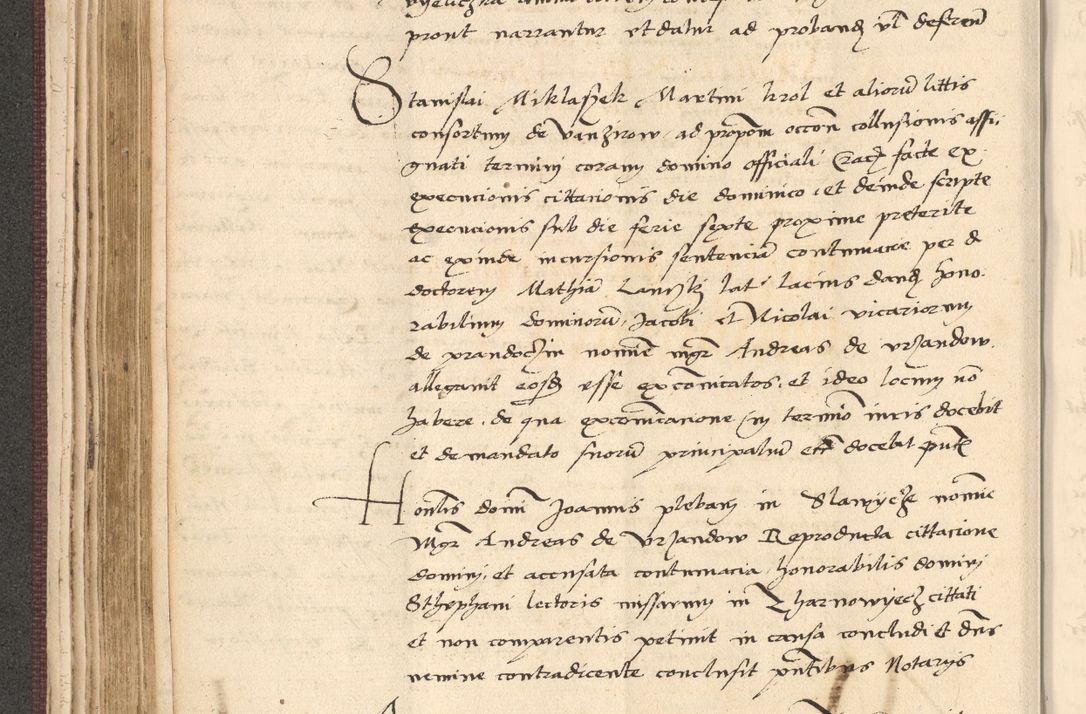 pront narrantur et datur ad proband ut desreu
Stanislai Miklaszek Martini krol et aliorũ littis
consortum de Vanzirow ad propom occon collusionis assi,
gnati termini coram domino officiali Crac facte ex
execucionis cittacionis die dominico et deinde scripte
execucionis sub die ferie sexte proxime preterite
ac exinde incursionis sentenciarũ contumacie per d
doctorem Mathiã lat lacius dand hono.
rabilium dominorũ Jacobi et Nicolai vicariorum
de prandoczin nomine mgr Andreas de vrzandow.
allegavit eosd esse excomicatos, et ideo locum nõ
habere, de qua excomicacione in termino iuris docebit
et de mandato suorũ principaliũ etc docebit putt
Honlis domi Joannis plebani in Slawycze nomine
Mgr Andreas de Vrzandow Reproducta cittacione
domini, et accusata contumacia honorabilis domini
Sthephani lectoris missarum in Tharnowyecz cittati
et non comparentis petiuit in causa concludi et dns
nemine contradicente conclusit pntibus Notarijs